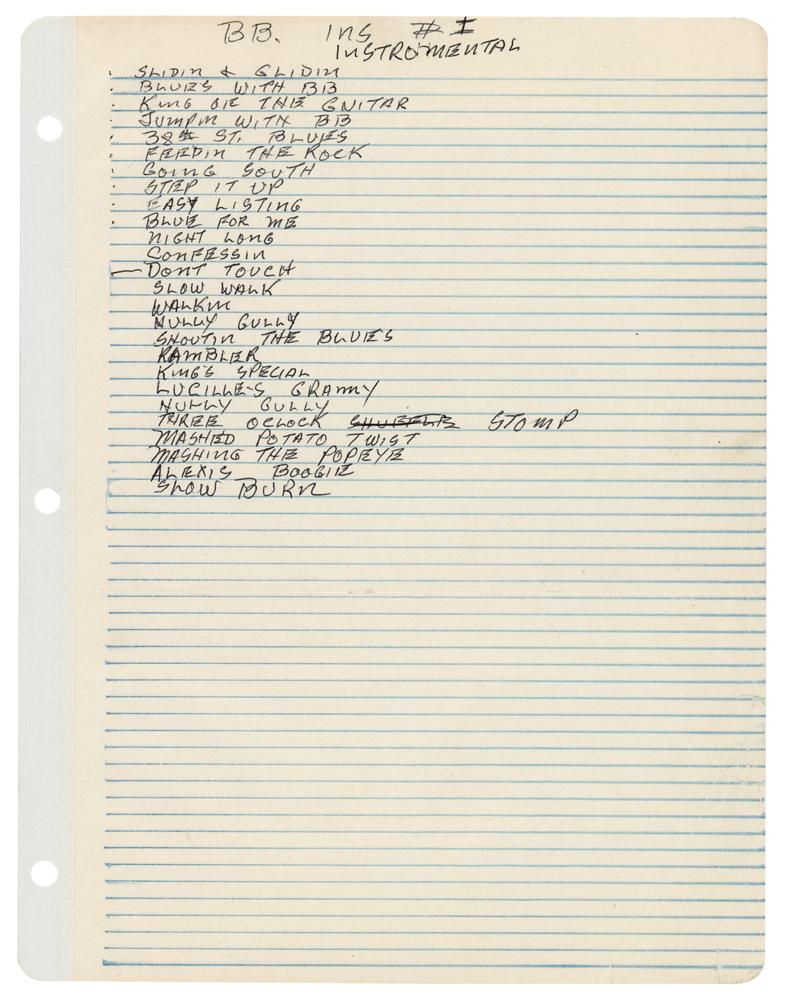 BB. INS # I
INSTROMENTAL
SLIDIN & GLIDIN
BLUES WITH BB
KING OF THE GNITAR
JUMPIN WITH BB
38th ST. BLUES
FEEDIN THE ROCK
GOING SOUTH
STEP IT UP
EASY LISTING
BLUE FOR ME
NIGHT LONG
CONFESSIN
DONT TOUCH
SLOW WALK
WALKIN
HULLY GULLY
SHOUTIN THE BLUES
RAMBLER
KING'S SPECIAL
LUCILLE-S GRANNY
HULLY GULLY
THREE OCLOCK SHUFFLE STOMP
MASHED POTATO TWIST
MASHING THE POPEYE
ALEXIS BOOGIE
SLOW BURN